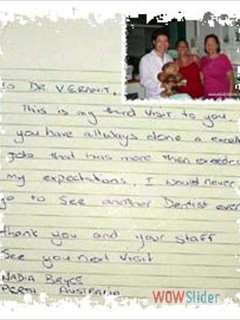 To DR VERAVIT,
This is my third visit to you.
you have allways done a excelle
Job that has more then exceded
my expectations. I would never
go to see another Dentist ever
thank you and your staff
See you next visit
NADIA BRYCE
PERTH AUSTRALIA
WOWSlider